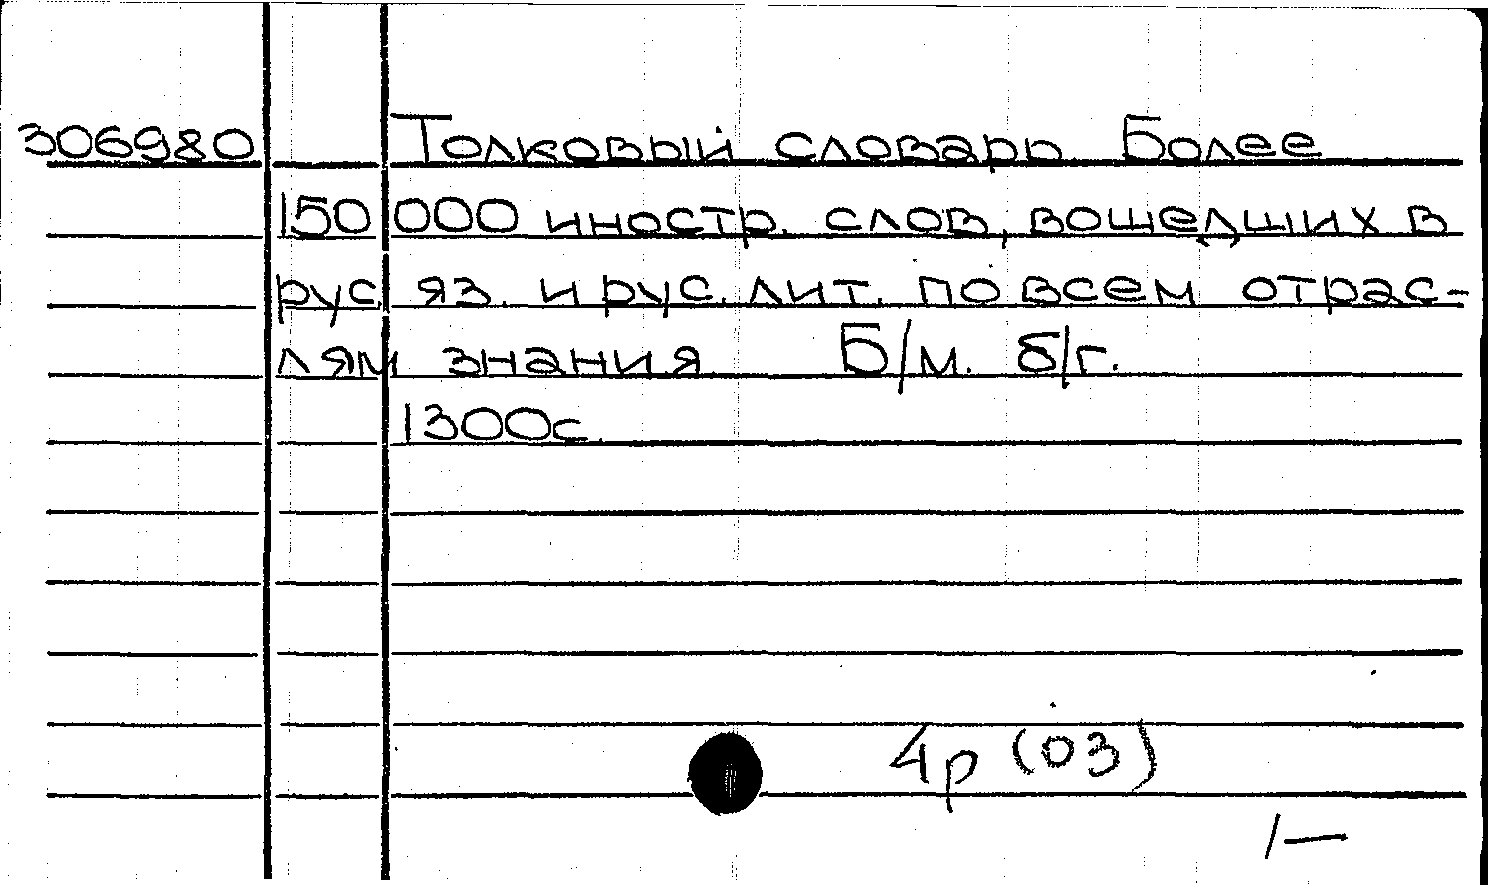 306980 Толковый словарь Более
150 000 иностр. слов, вошедших в
рус. яз. и рус. лит. по всем отрас-
лям знания Б/м. б/г.
1300с.
4р (03)
1—